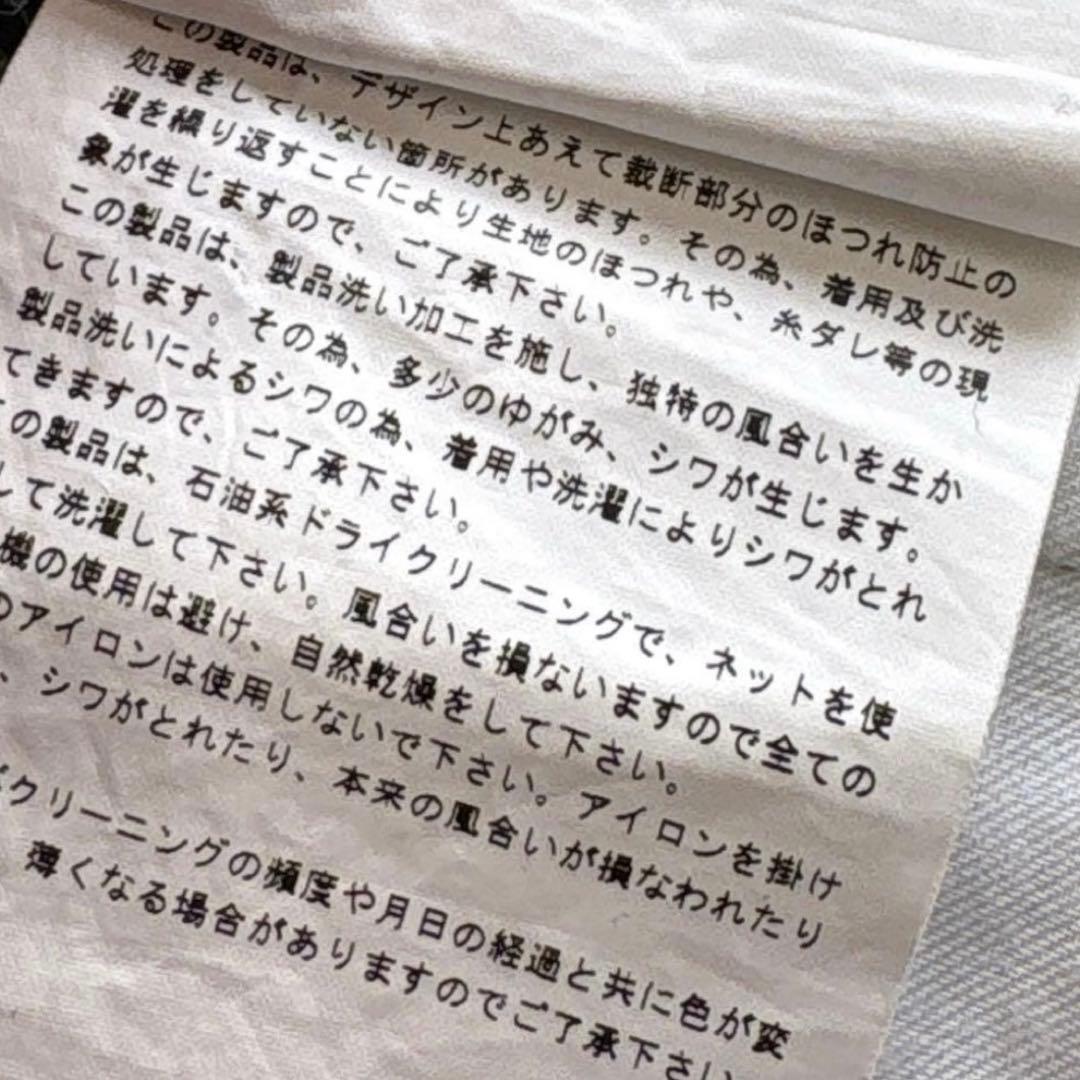 この製品は、デザイン上あえて裁断部分のほつれ防止の
処理をしていない箇所があります。その為、着用及び洗
濯を繰り返すことにより生地のほつれや、糸ダレ等の現
象が生じますので、ご了承下さい。
この製品は、製品洗い加工を施し、独特の風合いを生か
しています。その為、多少のゆがみ、シワが生じます。
製品洗いによるシワの為、着用や洗濯によりシワがとれ
てきますので、ご了承下さい。
の製品は、石油系ドライクリーニングで、ネットを使
して洗濯して下さい。風合いを損ないますので全ての
機の使用は避け、自然乾燥をして下さい。
のアイロンは使用しないで下さい。アイロンを掛け
、シワがとれたり、本来の風合いが損なわれたり
クリーニングの頻度や月日の経過と共に色が変
薄くなる場合がありますのでご了承下さい